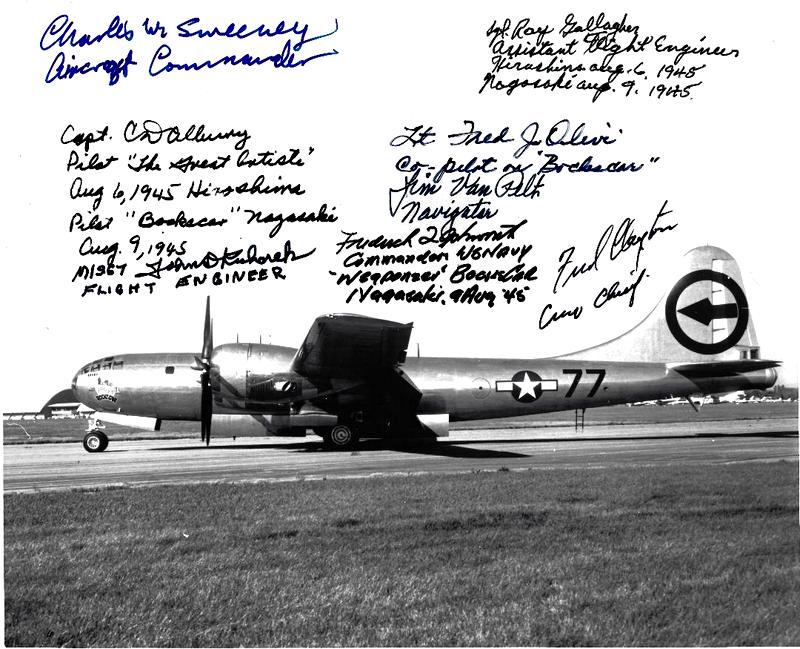 Charles W. Sweeney
Aircraft Commander
Sgt. Ray Gallagher
Assistant Flight Engineer
Hiroshima Aug. 6, 1945
Nagasaki Aug. 9, 1945.
Capt. C D Albury
Pilot "The Great Artiste"
Aug 6, 1945 Hiroshima
Pilot "Bockscar" Nagasaki
Aug. 9, 1945
M/SGT John D Kuharek
FLIGHT ENGINEER
Lt Fred J Olivi
Co-pilot on "Bockscar"
Jim Van Pelt
Navigator
Frederick L Ashworth
Commander US NAVY
"Weaponeer" BOCKSCAR
Nagasaki, 9 Aug '45
Fred Clayton
Crew Chief
77